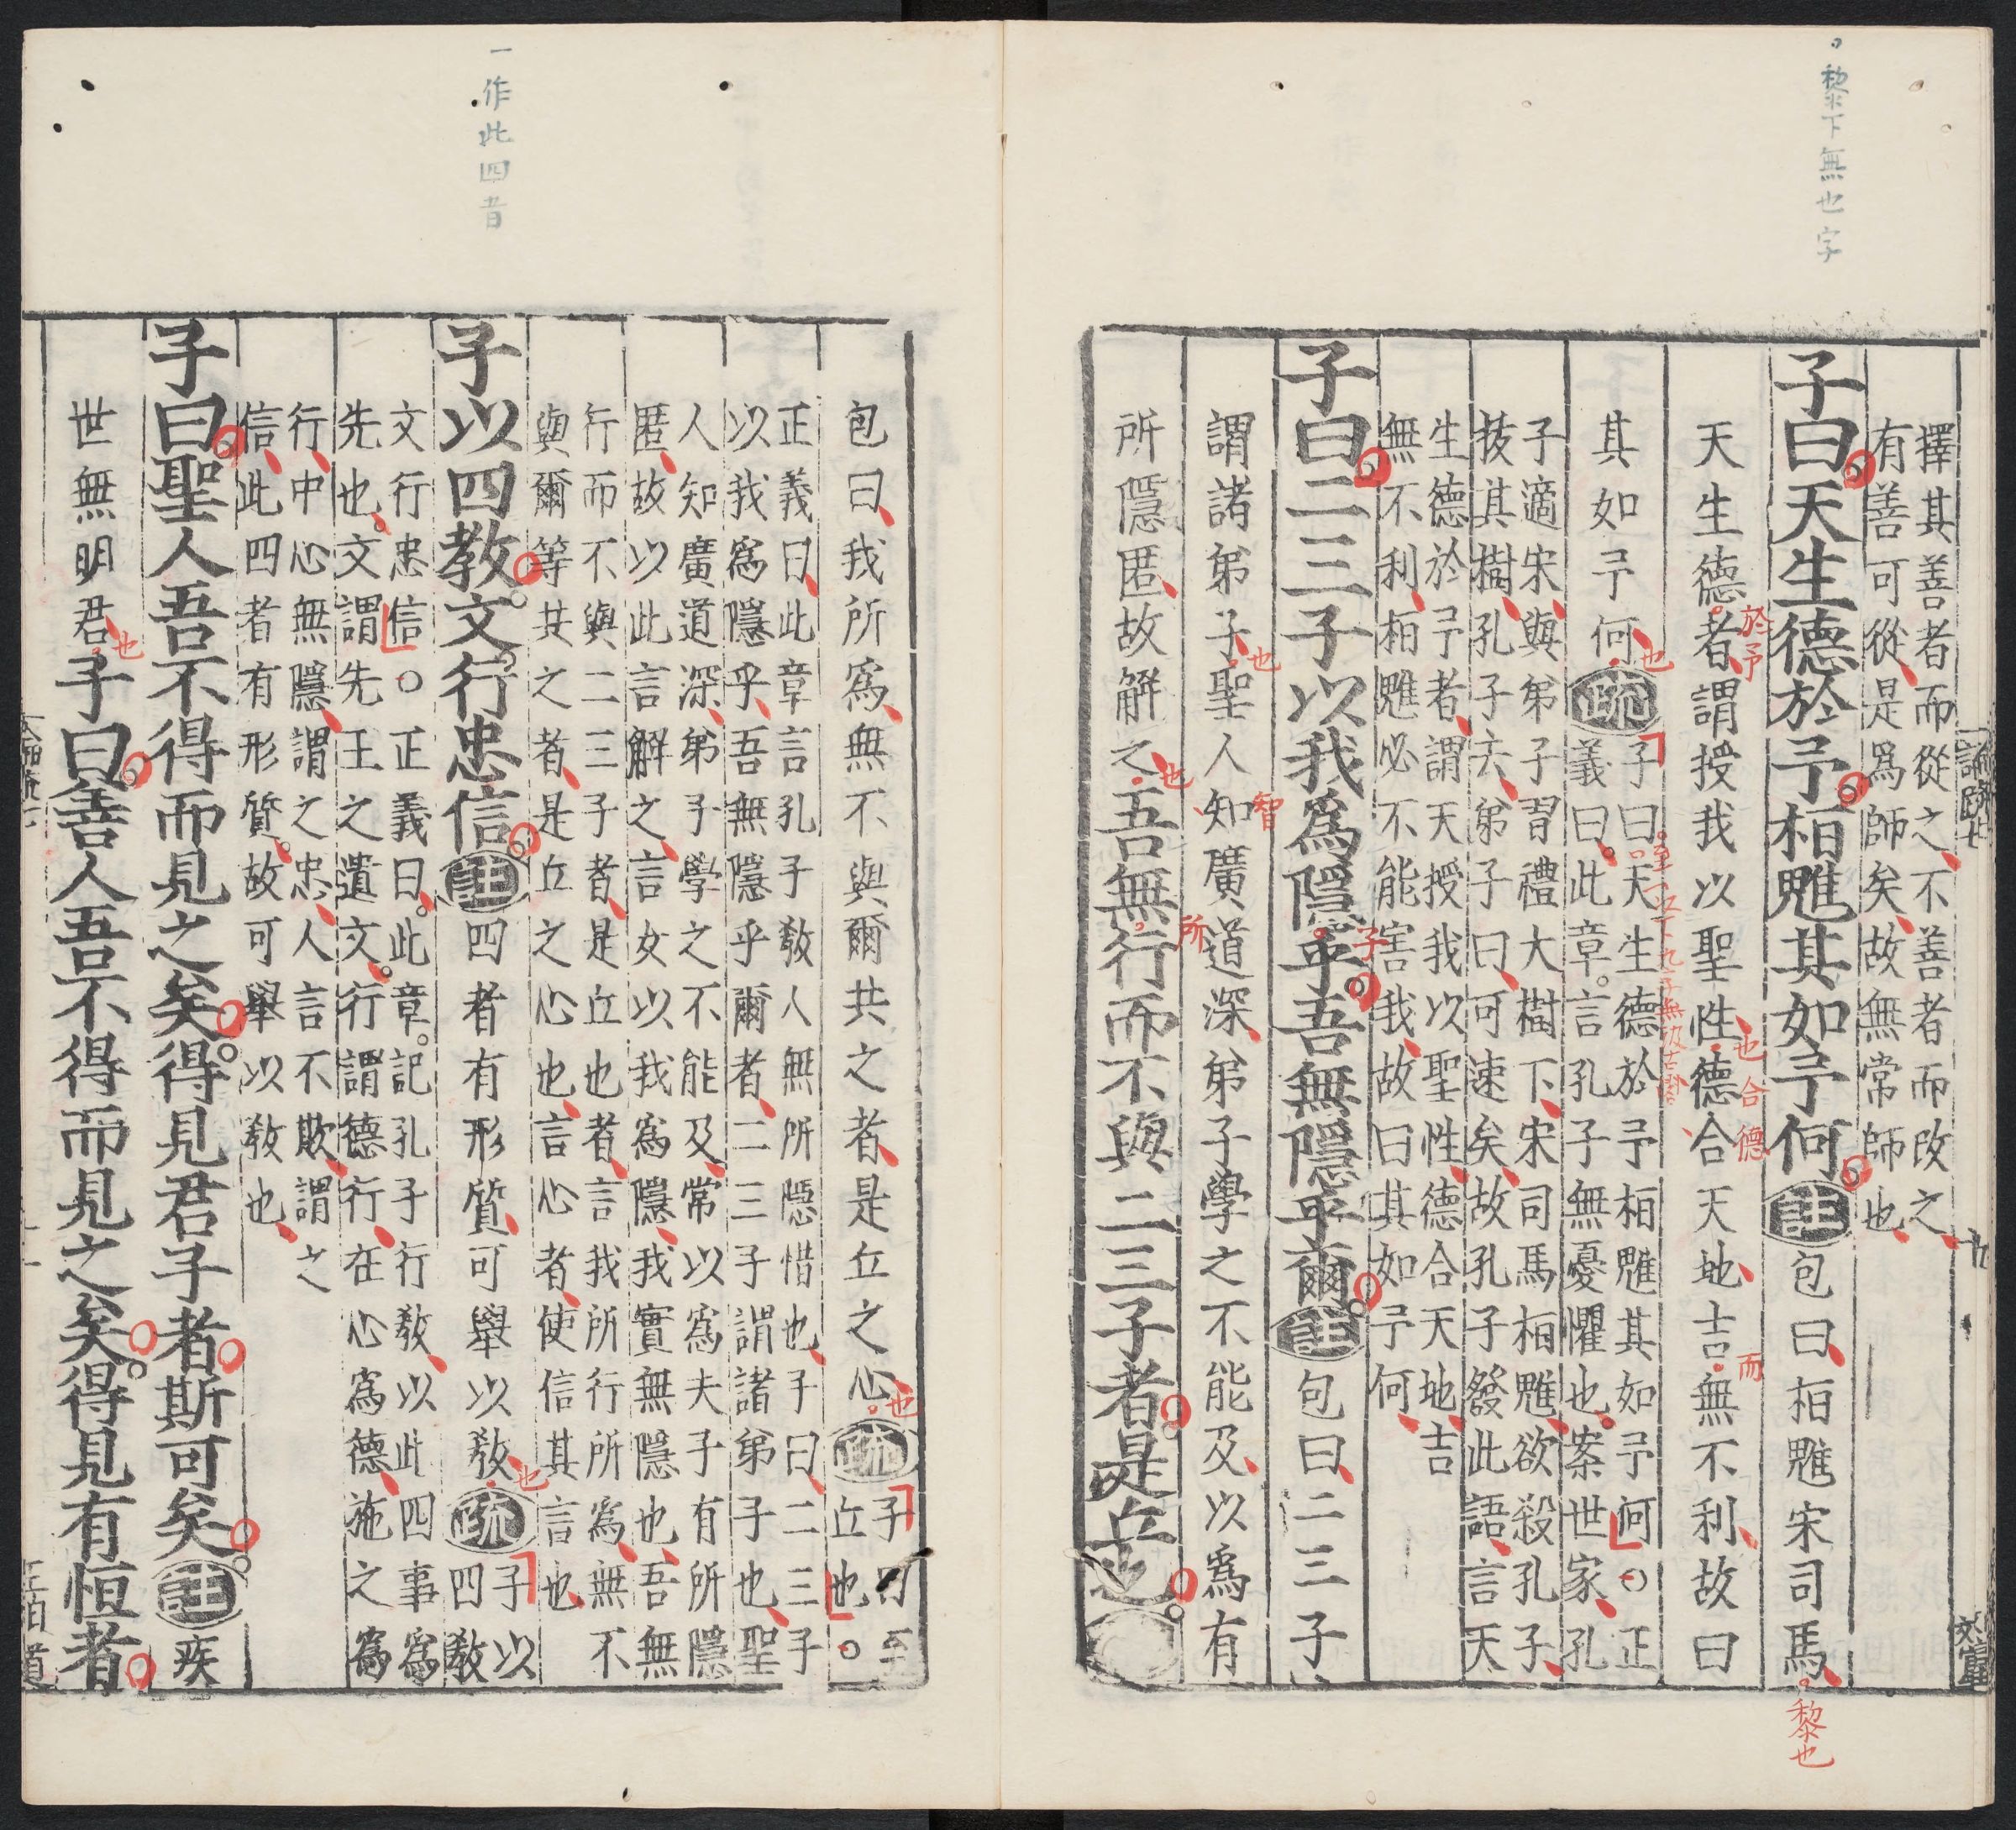 黎下無也字
論疏七 九 文富
擇其善者而從之不善者而改之
有善可從是爲師矣故無常師也
子曰天生德於予桓魋其如予何註包曰桓魋宋司馬
黎也
天生德者謂授我以聖性德合天地吉無不利故曰
於予
也合德
而
其如予何疏
也
子曰天生德於予桓魋其如予何○正
義曰此章言孔子無憂懼也案世家孔
子適宋與弟子習禮大樹下宋司馬桓魋欲殺孔子
拔其樹孔子去弟子曰可速矣故孔子發此語言天
生德於予者謂天授我以聖性德合天地吉
無不利桓魋必不能害我故曰其如予何
子曰二三子以我爲隱乎吾無隱乎爾註包曰二三子
子
謂諸弟子聖人知廣道深弟子學之不能及以爲有
也
智
所隱匿故解之吾無行而不與二三子者是丘也
也
所
一作此四者
包曰我所爲無不與爾共之者是丘之心疏
也
子曰至
丘也○
正義曰此章言孔子教人無所隱惜也子曰二三子
以我爲隱乎吾無隱乎爾者二三子謂諸弟子也聖
人知廣道深弟子學之不能及常以爲夫子有所隱
匿故以此言解之言女以我爲隱我實無隱也吾無
行而不與二三子者是丘也者言我所行所爲無不
與爾等共之者是丘之心也言心者使信其言也
子以四教文行忠信註四者有形質可舉以教疏
也
子以
四教
文行忠信○正義曰此章記孔子行教以此四事爲
先也文謂先王之遺文行謂德行在心爲德施之爲
行中心無隱謂之忠人言不欺謂之
信此四者有形質故可舉以教也
子曰聖人吾不得而見之矣得見君子者斯可矣註疾
世無明君子曰善人吾不得而見之矣得見有恒者
也